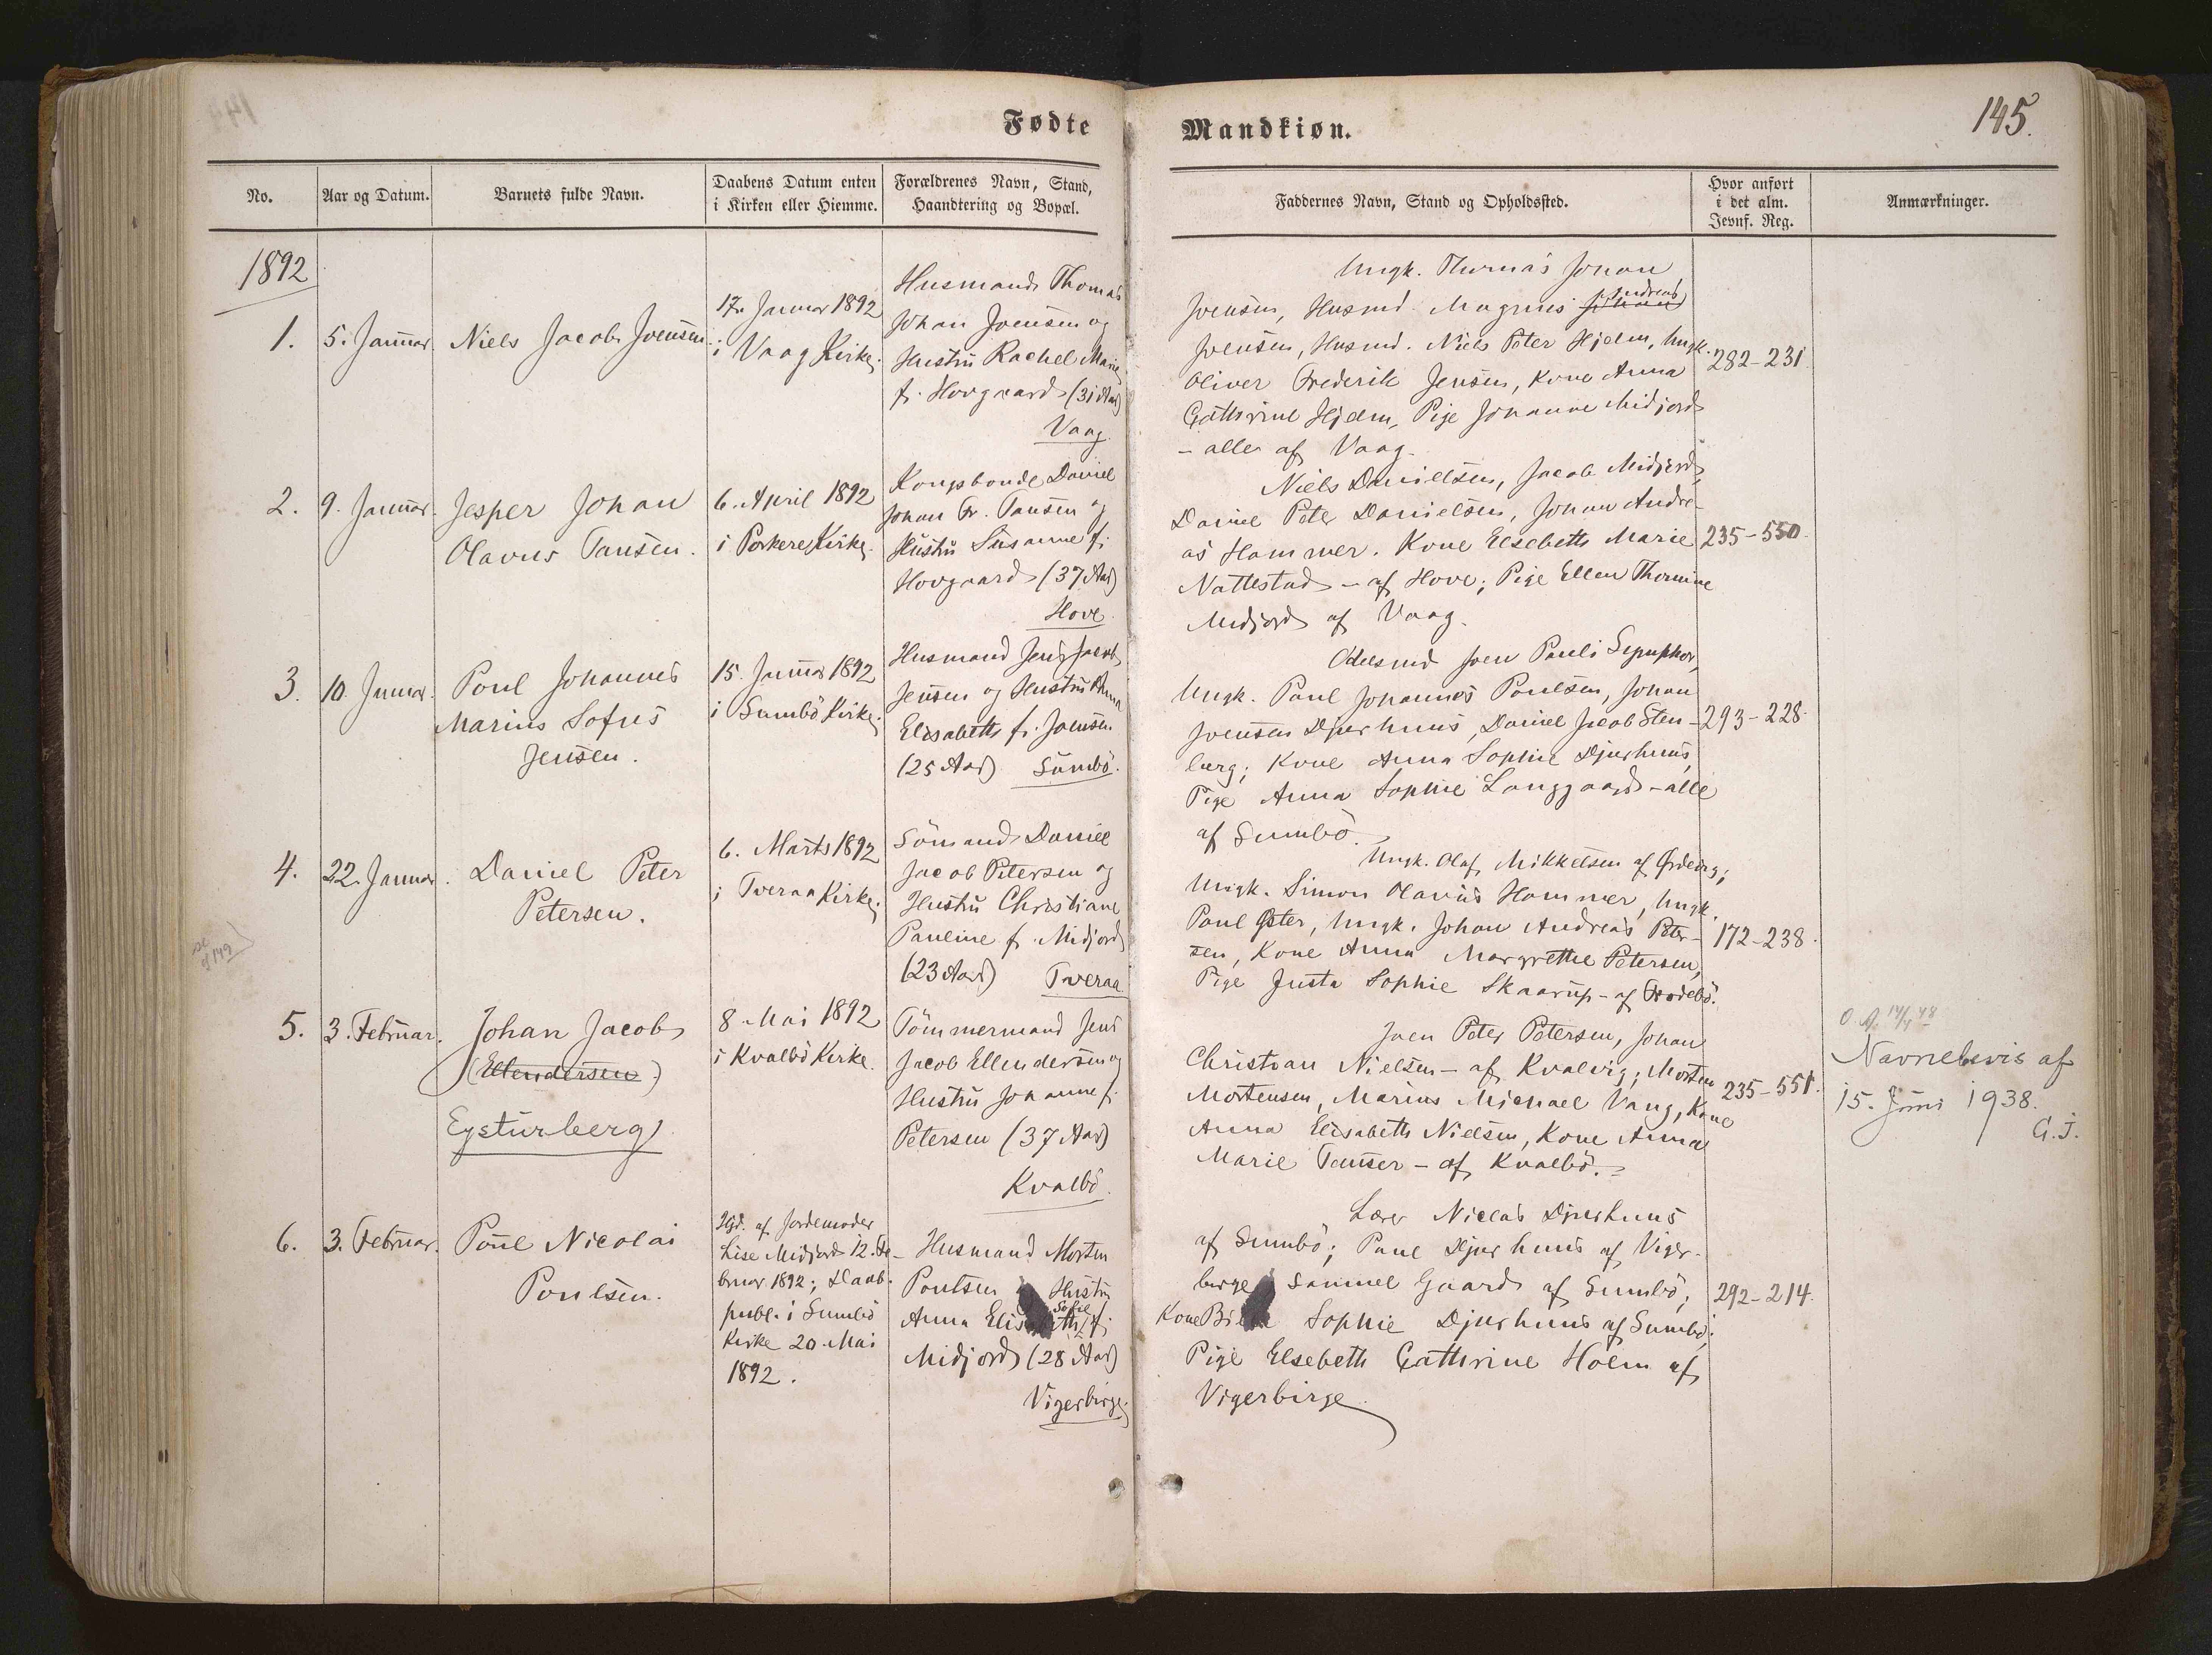 Fødte
No.
Aar og Datum.
Barnets fulde Navn.
Daabens Datum enten
i Kirken eller Hiemme.
Forældrenes Navn, Stand,
Haandtering og Bopæl.
1892
1.
5. Januar
Niels Jacob Joensen
17. Januar 1892
i Vaag Kirke.
Husmand Thomas
Johan Joensen og
Hustru Rachel Marie
f. Hovgaard (31 Aar)
Vaag.
2.
9. Januar.
Jesper Johan
Olavus Tausen.
6. April 1892
i Porkere Kirke.
Kongsbonde Daniel
Johan Fr. Tausen og
Hustru Susanne f.
Hovgaard (37 Aar)
Hove.
3.
10. Januar.
Poul Johannes
Marius Sofus
Jensen.
15. Januar 1892
i Sumbö Kirke.
Husmand Jens Jacob
Jensen og Hustru Anna
Elisabeth f. Joensen
(25 Aar) Sumbö.
4.
22. Januar.
Daniel Peter
Petersen.
6. Marts 1892
i Tveraa Kirke.
Sömand Daniel
Jacob Petersen og
Hustru Christiane
Pauline f. Midjord
(23 Aar) Tveraa
se
149
5.
3. Februar.
Johan Jacob
(Ellendersen)
Eysturberg
8. Mai 1892
i Kvalbö Kirke.
Tömmermand Jens
Jacob Ellendersen og
Hustru Johanne f.
Petersen (37 Aar)
Kvalbö.
6.
3. Februar.
Poul Nicolai
Poulsen.
Hjd. af Jordemoder
Lise Midjord 12. Fe-
bruar 1892; Daab.
publ. i Sumbö
Kirke 20. Mai
1892.
Husmand Morten
Poulsen Hustru
Sofie
Anna Elisabeth f.
Midjord (28 Aar)
Vigerbirge.
Mandkiøn.
145.
Faddernes Navn, Stand og Opholdssted.
Hvor anført
i det alm.
Jevnf. Reg.
Anmærkninger.
Ungk. Thomas Johan
Andreas
Joensen, Husmd. Magnus Johan
Joensen, Husmd. Niels Peter Hjelm, Ungk.
Oliver Frederik Jensen, Kone Anna
Cathrine Hjelm, Pige Johanne Midjord
- alle af Vaag.
282-231
Niels Danielsen, Jacob Midjord,
Daniel Peter Danielsen, Johan Andre-
as Hammer. Kone Elsebeth Marie
Nattestad - af Hove; Pige Ellen Thomine
Midjord af Vaag.
235-550.
Odelsmd Joen Pauli
Ungk. Poul Johannes Poulsen, Johan
Joensen Djurhuus, Daniel Jacob Sten-
berg; Kone Anna Sophie Djurhuus,
Pige Anna Sophie Langgaard - alle
af Sumbö.
293-228.
Ungk. Olaf Mikkelsen af
Ungk. Simon Olavus Hammer, Ungk.
Poul Öster, Ungk. Johan Andreas Peter-
sen, Kone Anna Margrethe Petersen,
Pige Justa Sophie Skaarup - af
172-238.
Joen Peter Petersen, Johan
Christian Nielsen - af Kvalvig; Morten
Mortensen, Marius Michael Vang, Kone
Anna Elisabeth Nielsen, Kone Anna
Marie Tausen - af Kvalbö.
235-551.
Navnebevis af
15. Juni 1938.
G.J.
Lærer Niclas Djurhuus
af Sumbö; Poul Djurhuus af Viger-
birge Samuel Gaard af Sumbö;
Kone Sophie Djurhuus af Sumbö;
Pige Elsebeth Cathrine Holm af
Vigerbirge.
292-214.